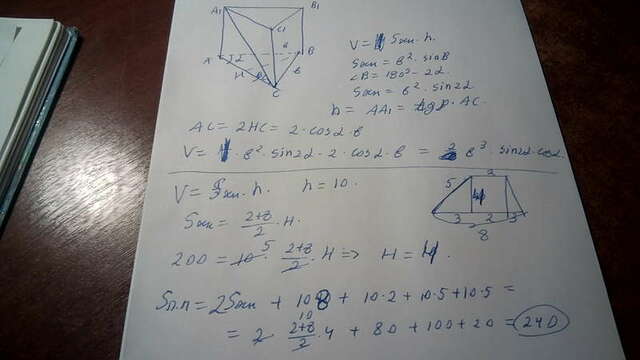 A₁ B₁
C₁
A α B
H в
C
V = Sосн · h.
Sосн = в² · sinB
∠B = 180° - 2α
Sосн = в² · sin2α
h = AA₁ = tgβ · AC.
AC = 2HC = 2 · cosα · в
V = в² · sin2α · 2 · cosα · в = 2 в³ · sin2α · cosα.
V = Sосн · h. h = 10.
2
5 4
3 2 3
8
Sосн = (2+8)/2 · H.
200 = 10 · (2+8)/2 · H => H = 4.
Sп.п = 2Sосн + 10·8 + 10·2 + 10·5 + 10·5 =
= 2 · (2+8)/2 · 4 + 80 + 100 + 20 = 240